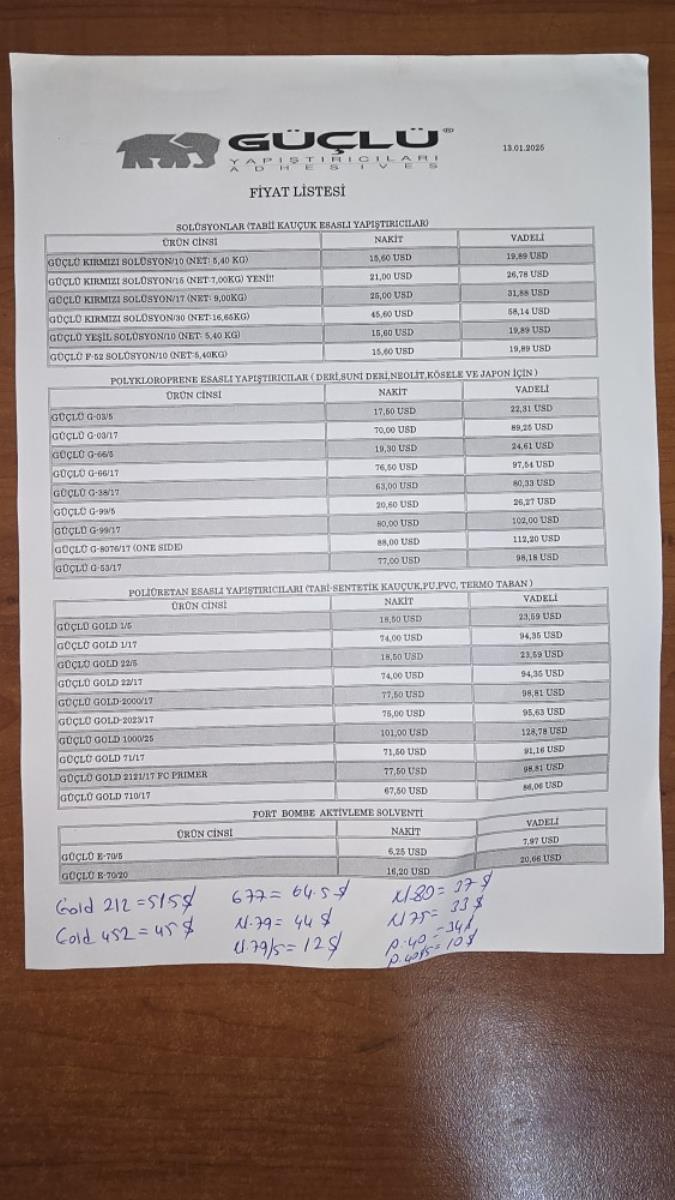 GÜÇLÜ®
YAPIŞTIRICILARI
ADHESIVES
13.01.2025
FİYAT LİSTESİ
SOLÜSYONLAR (TABİİ KAUÇUK ESASLI YAPIŞTIRICILAR)
ÜRÜN CİNSİ NAKİT VADELİ
GÜÇLÜ KIRMIZI SOLÜSYON/10 (NET: 5,40 KG) 15,60 USD 19,89 USD
GÜÇLÜ KIRMIZI SOLÜSYON/15 (NET:7,00KG) YENİ!! 21,00 USD 26,78 USD
GÜÇLÜ KIRMIZI SOLÜSYON/17 (NET: 9,00KG) 25,00 USD 31,88 USD
GÜÇLÜ KIRMIZI SOLÜSYON/30 (NET:16,65KG) 45,60 USD 58,14 USD
GÜÇLÜ YEŞİL SOLÜSYON/10 (NET: 5,40 KG) 15,60 USD 19,89 USD
GÜÇLÜ F-52 SOLÜSYON/10 (NET:5,40KG) 15,60 USD 19,89 USD
POLYKLOROPRENE ESASLI YAPIŞTIRICILAR ( DERİ,SUNİ DERİ,NEOLİT,KÖSELE VE JAPON İÇİN )
ÜRÜN CİNSİ NAKİT VADELİ
GÜÇLÜ G-03/5 17,50 USD 22,31 USD
GÜÇLÜ G-03/17 70,00 USD 89,25 USD
GÜÇLÜ G-66/5 19,30 USD 24,61 USD
GÜÇLÜ G-66/17 76,50 USD 97,54 USD
GÜÇLÜ G-38/17 63,00 USD 80,33 USD
GÜÇLÜ G-99/5 20,60 USD 26,27 USD
GÜÇLÜ G-99/17 80,00 USD 102,00 USD
GÜÇLÜ G-8076/17 (ONE SIDE) 88,00 USD 112,20 USD
GÜÇLÜ G-53/17 77,00 USD 98,18 USD
POLİÜRETAN ESASLI YAPIŞTIRICILARI (TABİ-SENTETİK KAUÇUK,PU,PVC, TERMO TABAN )
ÜRÜN CİNSİ NAKİT VADELİ
GÜÇLÜ GOLD 1/5 18,50 USD 23,59 USD
GÜÇLÜ GOLD 1/17 74,00 USD 94,35 USD
GÜÇLÜ GOLD 22/5 18,50 USD 23,59 USD
GÜÇLÜ GOLD 22/17 74,00 USD 94,35 USD
GÜÇLÜ GOLD-2000/17 77,50 USD 98,81 USD
GÜÇLÜ GOLD-2023/17 75,00 USD 95,63 USD
GÜÇLÜ GOLD 1000/25 101,00 USD 128,78 USD
GÜÇLÜ GOLD 71/17 71,50 USD 91,16 USD
GÜÇLÜ GOLD 2121/17 FC PRIMER 77,50 USD 98,81 USD
GÜÇLÜ GOLD 710/17 67,50 USD 86,06 USD
FORT BOMBE AKTİVLEME SOLVENTİ
ÜRÜN CİNSİ NAKİT VADELİ
GÜÇLÜ E-70/5 6,25 USD 7,97 USD
GÜÇLÜ E-70/20 16,20 USD 20,66 USD
Gold 212 = 515$ 677 = 64.5 $ N.80 = 37 $
Gold 452 = 45 $ N.79 = 44 $ N 75 = 33 $
N.79/5 = 12 $ P.40 = 34$
P.40/5 = 10 $